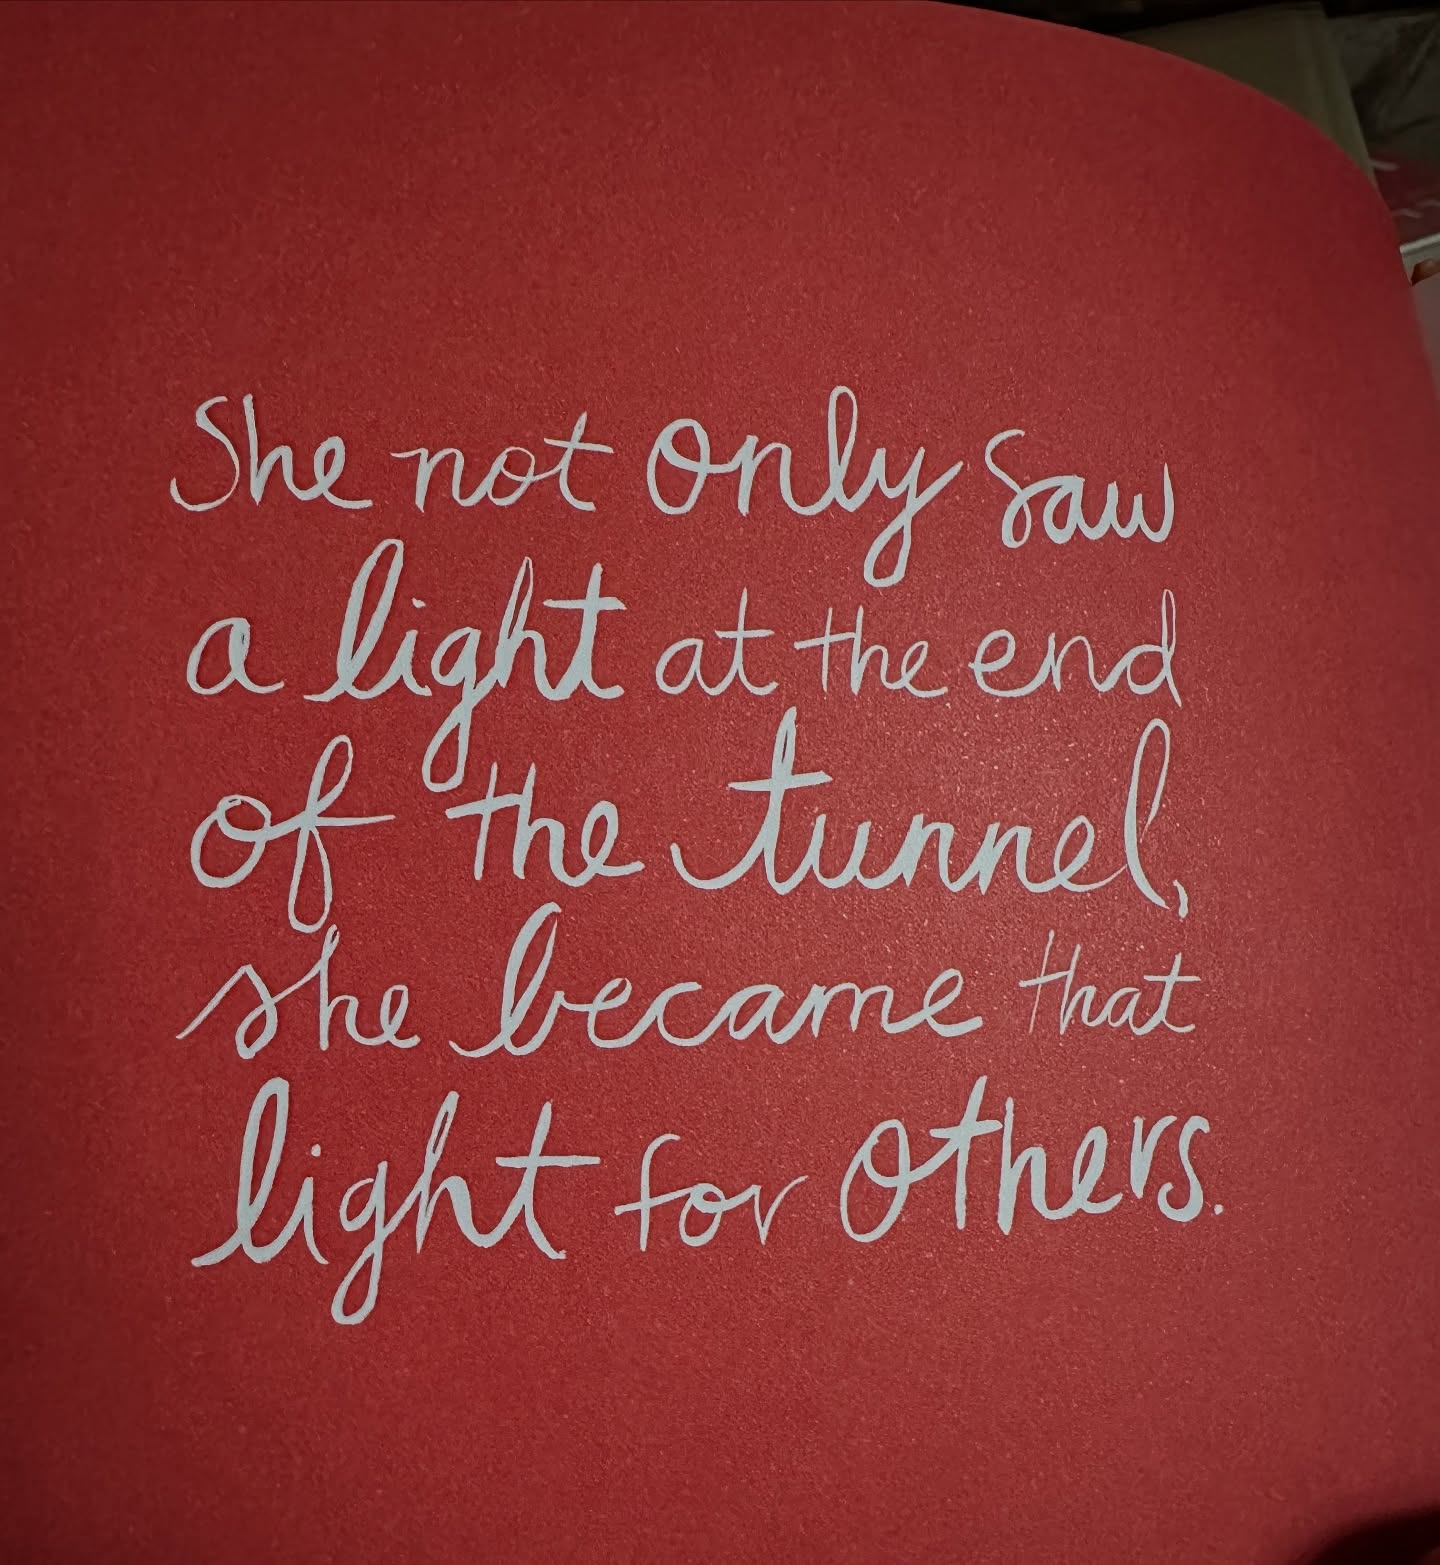 She not only saw
a light at the end
of the tunnel,
she became that
light for others.